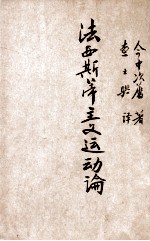 今中次麿 著
查士驥 译
法西斯蒂主义运动論